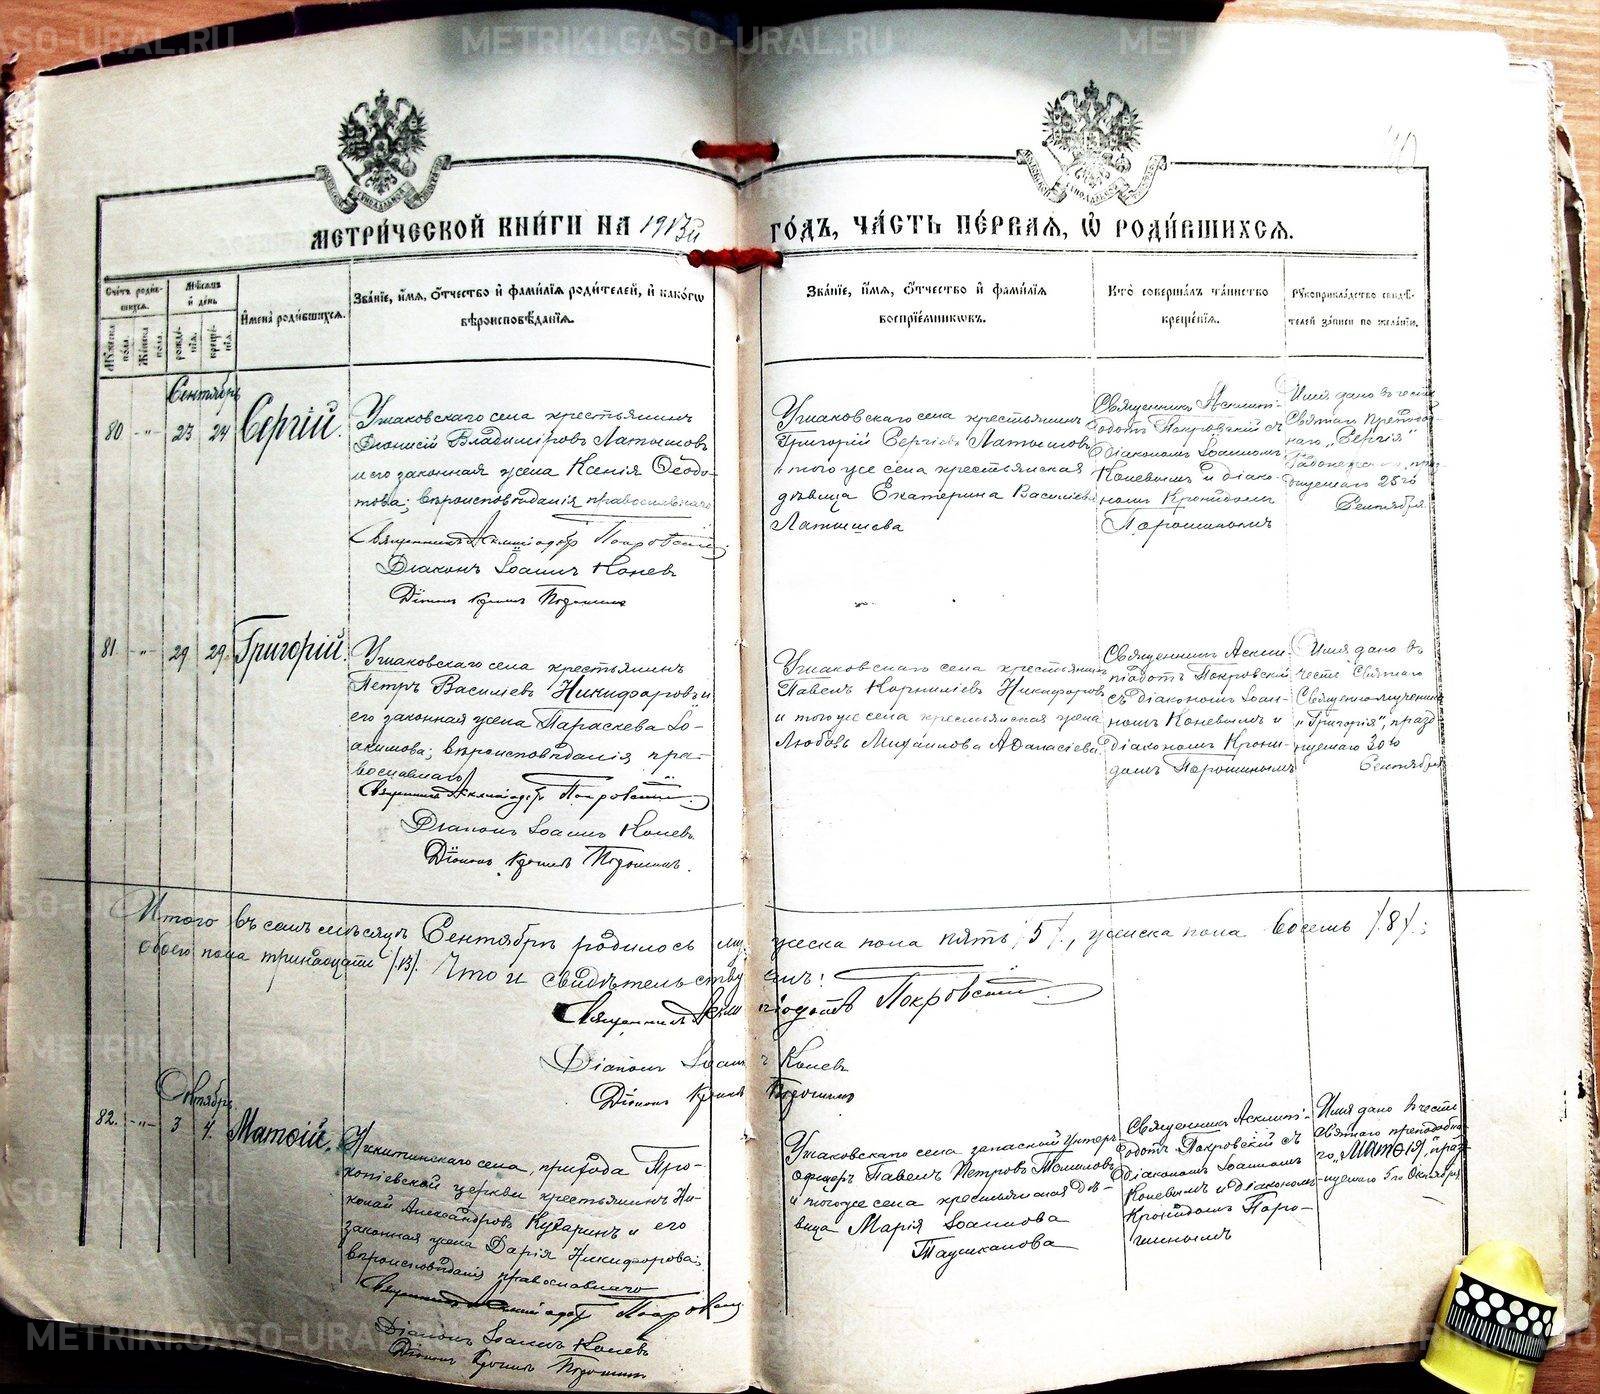 METRIKI.GASO-URAL.RU
МЕТРИ́ЧЕСКОЙ КНИ́ГИ НА 1913й ГО́ДЪ, ЧА́СТЬ ПЕ́РВАѦ, Ѡ҆ РОДИ́ВШИХСѦ.
Сче́тъ роди́вшихсѧ.
Мꙋ́жеска пола.
Же́нска пола
Мѣ́сѧцъ и҆ де́нь
рожде́нїѧ.
креще́нїѧ.
И҆мена̀ роди́вшихсѧ.
Зва́нїе, и҆́мѧ, ѻ҆́тчество и҆ фами́лїѧ роди́телей, и҆ како́гѡ
вѣроисповѣ́данїѧ.
Зва́нїе, и҆́мѧ, ѻ҆́тчество и҆ фами́лїѧ
воспрїе́мникѡвъ.
Кто̀ соверша́лъ та́инство
креще́нїѧ.
Рꙋкоприкла́дство свидѣ́-
телей за́писи по жела́нїю.
Сентябрь
80 -"- 23 24 Сергій.
Ушаковскаго села крестьянинъ
Діонисій Владиміровъ Латышовъ
и его законная жена Ксенія Ѳеодо-
това; вѣроисповѣданія православнаго
Священникъ Асклипіодотъ Покровскій
Діаконъ Іоаннъ Коневъ
Діаконъ Крон. Порошинъ
Ушаковскаго села крестьянинъ
Григорій Сергіевъ Латышовъ
и того же села крестьянская
дѣвица Екатерина Василіева
Латышева
Священникъ Асклипі-
одотъ Покровскій съ
діакономъ Іоанномъ
Коневымъ и діако-
номъ Кронидомъ
Порошинымъ
Имя дано въ честь
Святаго Преподоб-
наго "Сергія"
Радонежскаго, праз-
днуемаго 25го
Сентября
81 -"- 29 29 Григорій.
Ушаковскаго села крестьянинъ
Петръ Василіевъ Никифоровъ и
его законная жена Параскева Іо-
акимова; вѣроисповѣданія пра-
вославнаго
Священникъ Асклипіодотъ Покровскій.
Діаконъ Іоаннъ Коневъ.
Діаконъ Крон. Порошинъ.
Ушаковскаго села крестьянинъ
Павелъ Корниліевъ Никифоровъ
и того же села крестьянская жена
Любовь Михаилова Аѳанасіева
Священникъ Аскли-
піодотъ Покровскій
съ діакономъ Іоан-
номъ Коневымъ и
діакономъ Крони-
домъ Порошинымъ
Имя дано въ
честь Святаго
Священномученика
"Григорія", празд-
нуемаго 30го
Сентября
Итого въ семъ мѣсяцѣ Сентябрѣ родилось мужеска пола пять /5/, женска пола восемь /8/;
обоего пола тринадцать /13/. Что и свидѣтельствуемъ:
Священникъ Асклипіодотъ Покровскій.
Діаконъ Іоаннъ Коневъ
Діаконъ Кронидъ Порошинъ
Октябрь
82. -"- 3 4. Матѳій.
Никитинскаго села, прихода Про-
копіевской церкви крестьянинъ Ни-
колай Александровъ Кухаринъ и его
законная жена Дарія Никифорова;
вѣроисповѣданія православнаго
Священникъ Асклипіодотъ Покровскій
Діаконъ Іоаннъ Коневъ
Діаконъ Крон. Порошинъ
Ушаковскаго села запасной унтеръ
офицеръ Павелъ Петровъ Томиловъ
и того же села крестьянская дѣ-
вица Марія Іоаннова
Таушканова
Священникъ Асклипі-
одотъ Покровскій съ
діакономъ Іоанномъ
Коневымъ и діакономъ
Кронидомъ Поро-
шинымъ
Имя дано въ честь
Святаго преподобна-
го "Матѳія", праз-
днуемаго 5го Октября